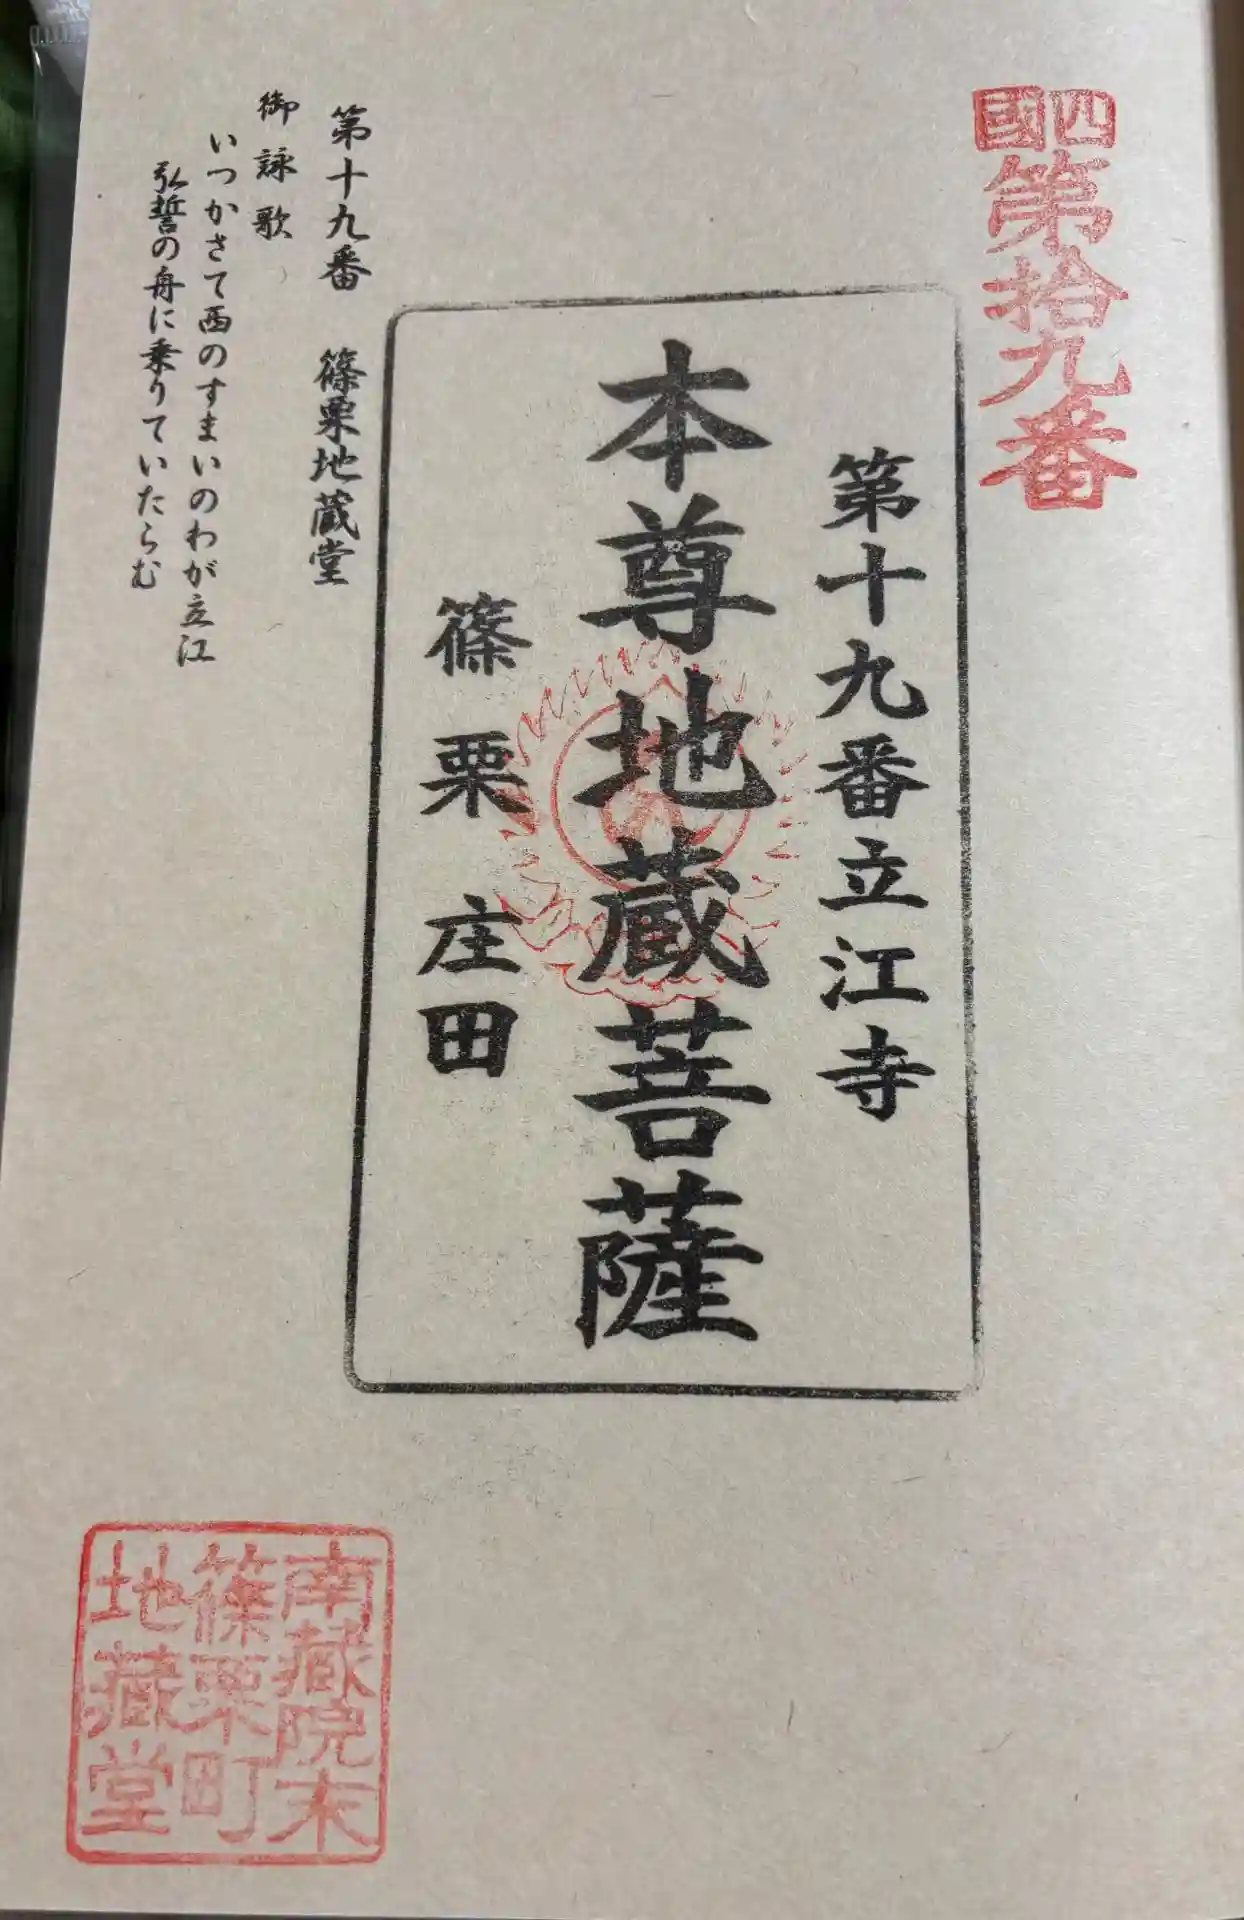 四國
第拾九番
第十九番立江寺
本尊地蔵菩薩
篠栗庄田
第十九番 篠栗地蔵堂
御詠歌
いつかさて西のすまいのわが立江
弘誓の舟に乗りていたらむ
南蔵院末
篠栗町
地蔵堂